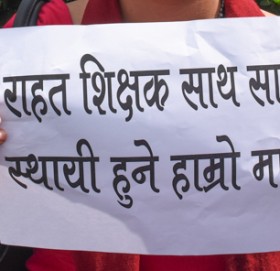 राहत शिक्षक साथ सा
स्थायी हुने हाम्रो